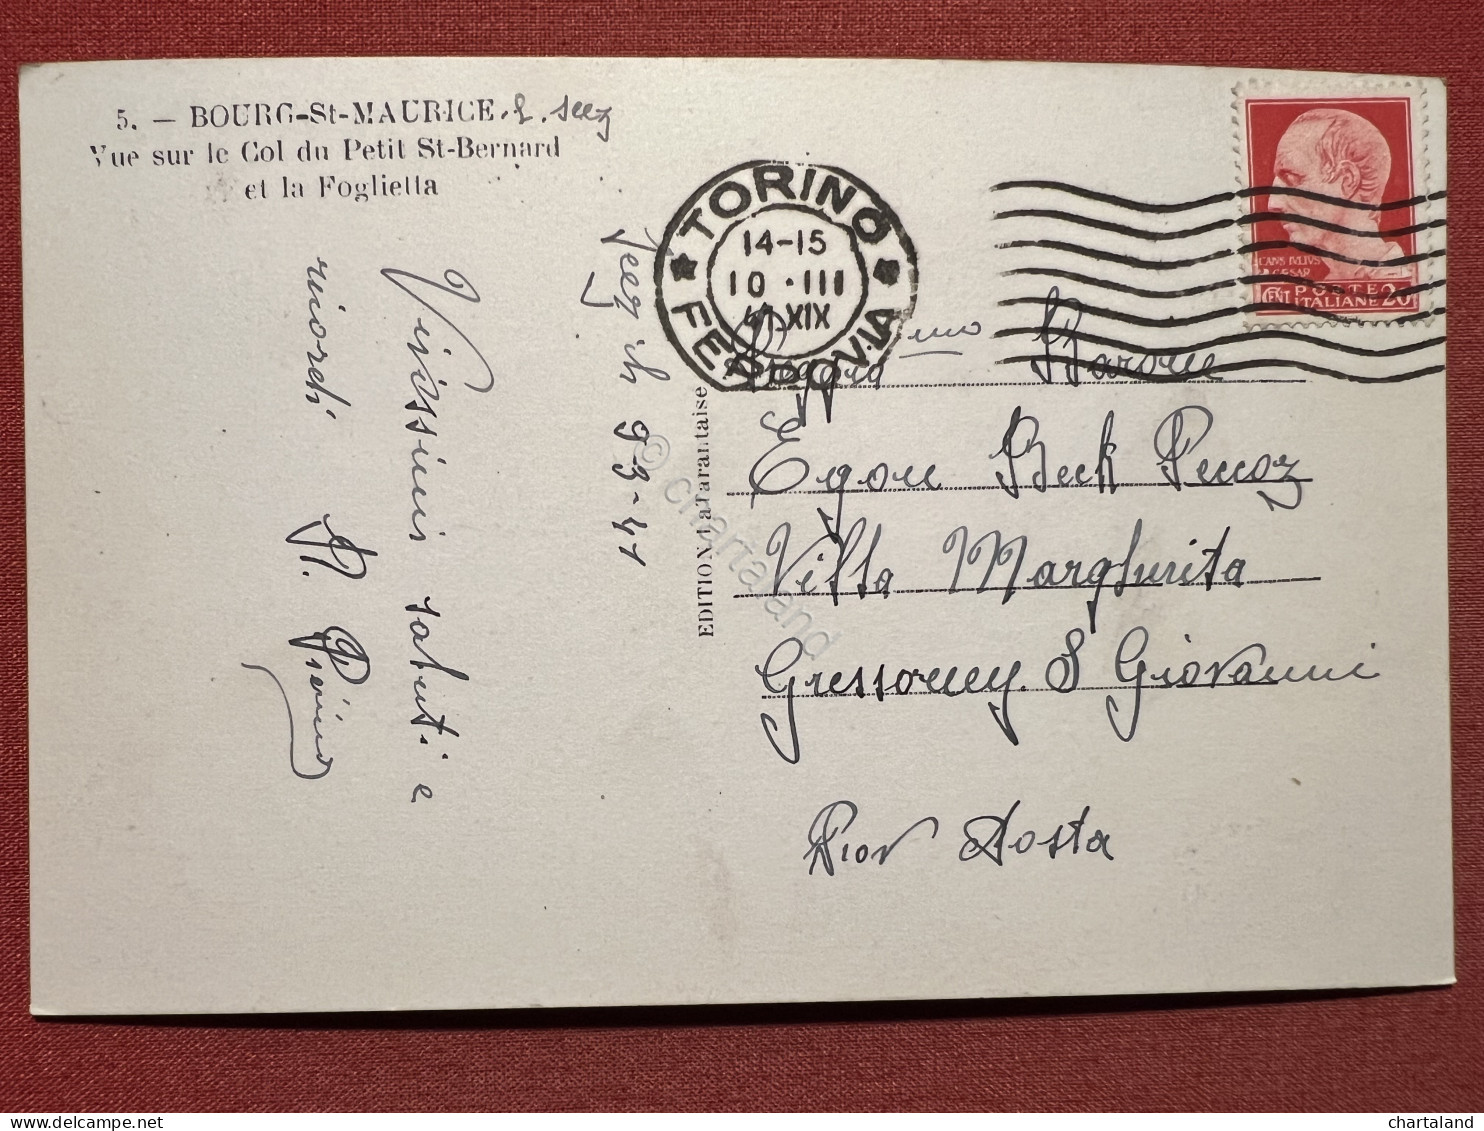 5. — BOURG-St-MAURICE. & Seez
Vue sur le Col du Petit St-Bernard
et la Foglietta
Vivissimi saluti e
ricordi
Seez ih 9-3-41
EDITION La Tarantaise
TORINO
14-15
10 · III
41.XIX
FERROVIA
CAIVS IVLIVS
CAESAR
CENT POSTE 20
ITALIANE
Barone
Egon Beck Peccoz
Villa Margherita
Gressoney. S Giovanni
Aosta
© chartaland
delcampe.net
chartaland